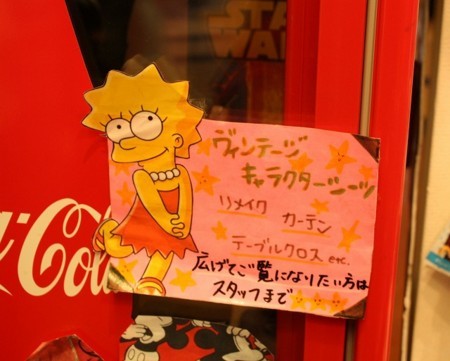 STAR
WARS
Coca-Cola
ヴィンテージ
キャラクターシーツ
リメイク カーテン
テーブルクロス etc.
広げてご覧になりたい方は
スタッフまで